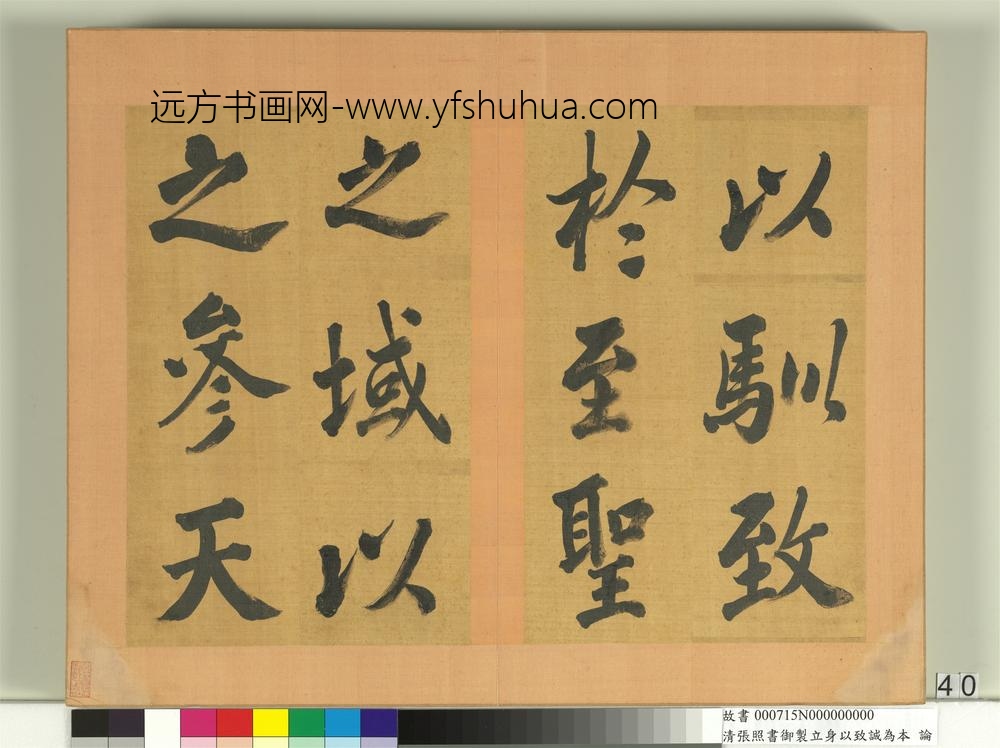 远方书画网-www.yfshuhua.com
以馴致
於至聖
之域以
之參天
40
故書 000715N000000000
清張照書御製立身以致誠為本 論